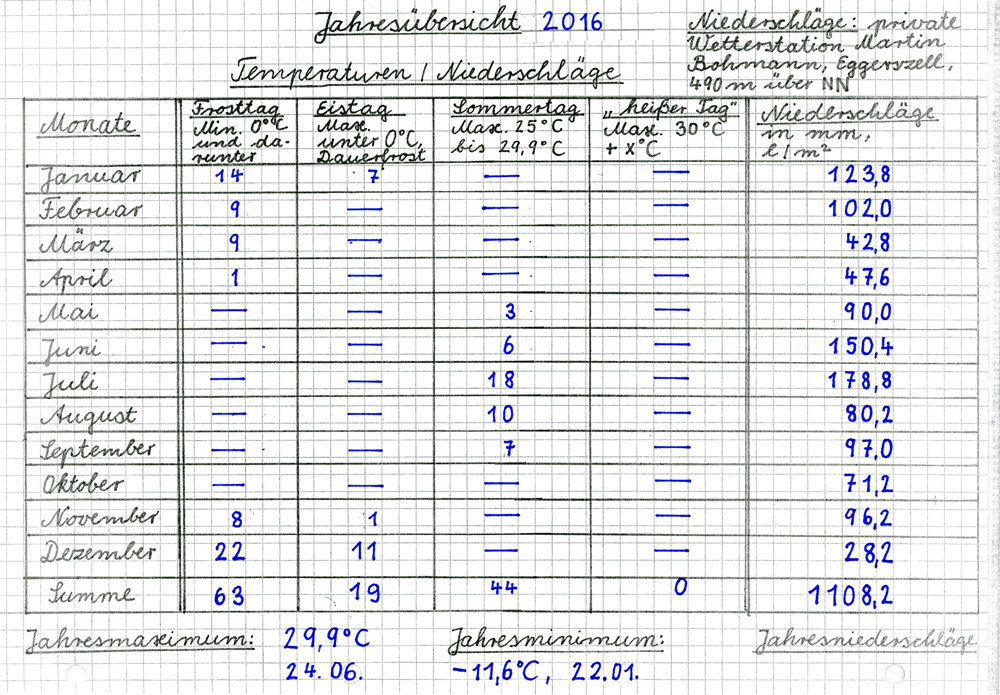 Jahresübersicht 2016
Niederschläge: private
Wetterstation Martin
Bohmann, Eggerszell,
490 m über NN
Temperaturen / Niederschläge
Monate | Frosttag Min. 0°C und da-runter | Eistag Max. unter 0°C, Dauerfrost | Sommertag Max. 25°C bis 29,9°C | „heißer Tag" Max. 30°C + x°C | Niederschläge in mm, l/m²
Januar 14 7 — — 123,8
Februar 9 — — — 102,0
März 9 — — — 42,8
April 1 — — — 47,6
Mai — — 3 — 90,0
Juni — — 6 — 150,4
Juli — — 18 — 178,8
August — — 10 — 80,2
September — — 7 — 97,0
Oktober — — — — 71,2
November 8 1 — — 96,2
Dezember 22 11 — — 28,2
Summe 63 19 44 0 1108,2
Jahresmaximum: 29,9°C Jahresminimum: Jahresniederschläge
24.06. -11,6°C, 22.01.